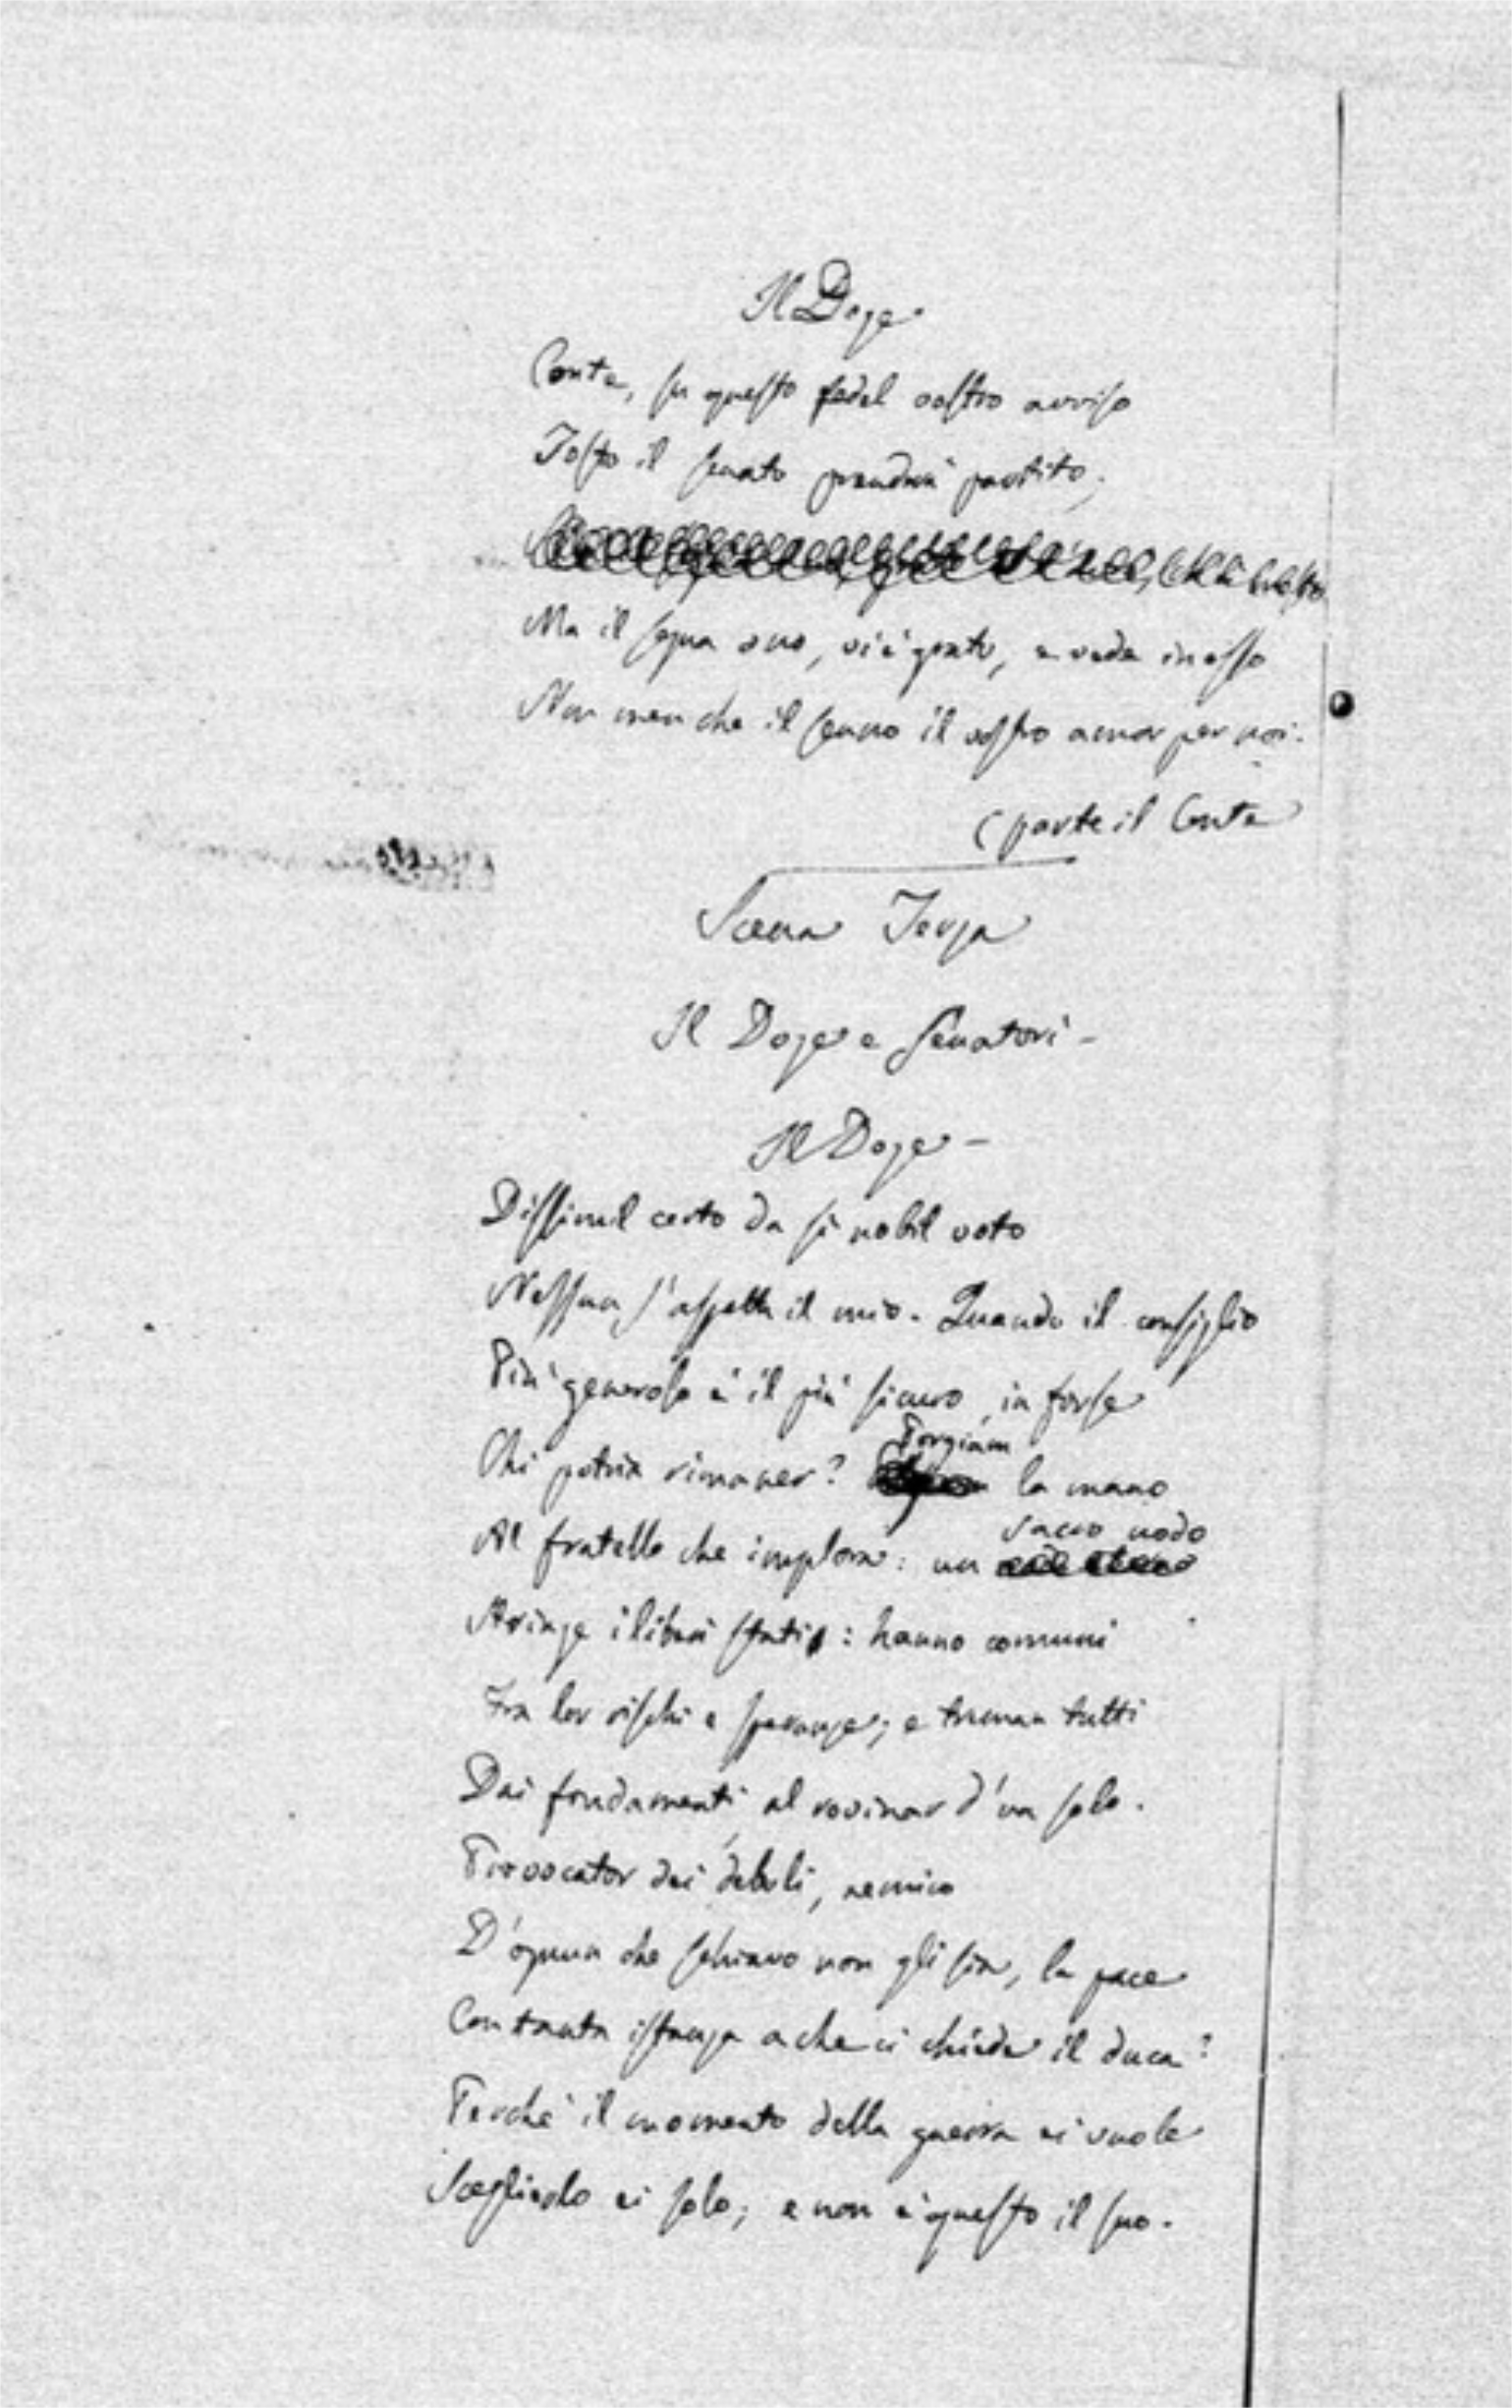 Il Doge
Conte, su questo fedel vostro avviso
Tosto il senato prenderà partito;
Ma il segua o no, vi è grato, e vede in esso
Non men che il senno il vostro amor per noi.
(parte il Conte
Scena Terza
Il Doge e Senatori -
Il Doge -
Dissimil certo da sì nobil voto
Nessun s'aspetta il mio. Quando il consiglio
Più generoso è il più sicuro, in forse
Chi potria rimaner? Porgiam la mano
Al fratello che implora: un sacro nodo
Stringe i liberi stati: hanno comuni
Fra lor rischi e speranze; e treman tutti
Dai fondamenti al rovinar d'un solo.
Provocator dei deboli, nemico
D'ognun che schiavo non gli sia, la pace
Con tanta istanza a che ci chiede il duca?
Perchè il momento della guerra ei vuole
Sceglierlo ei solo; e non è questo il suo.